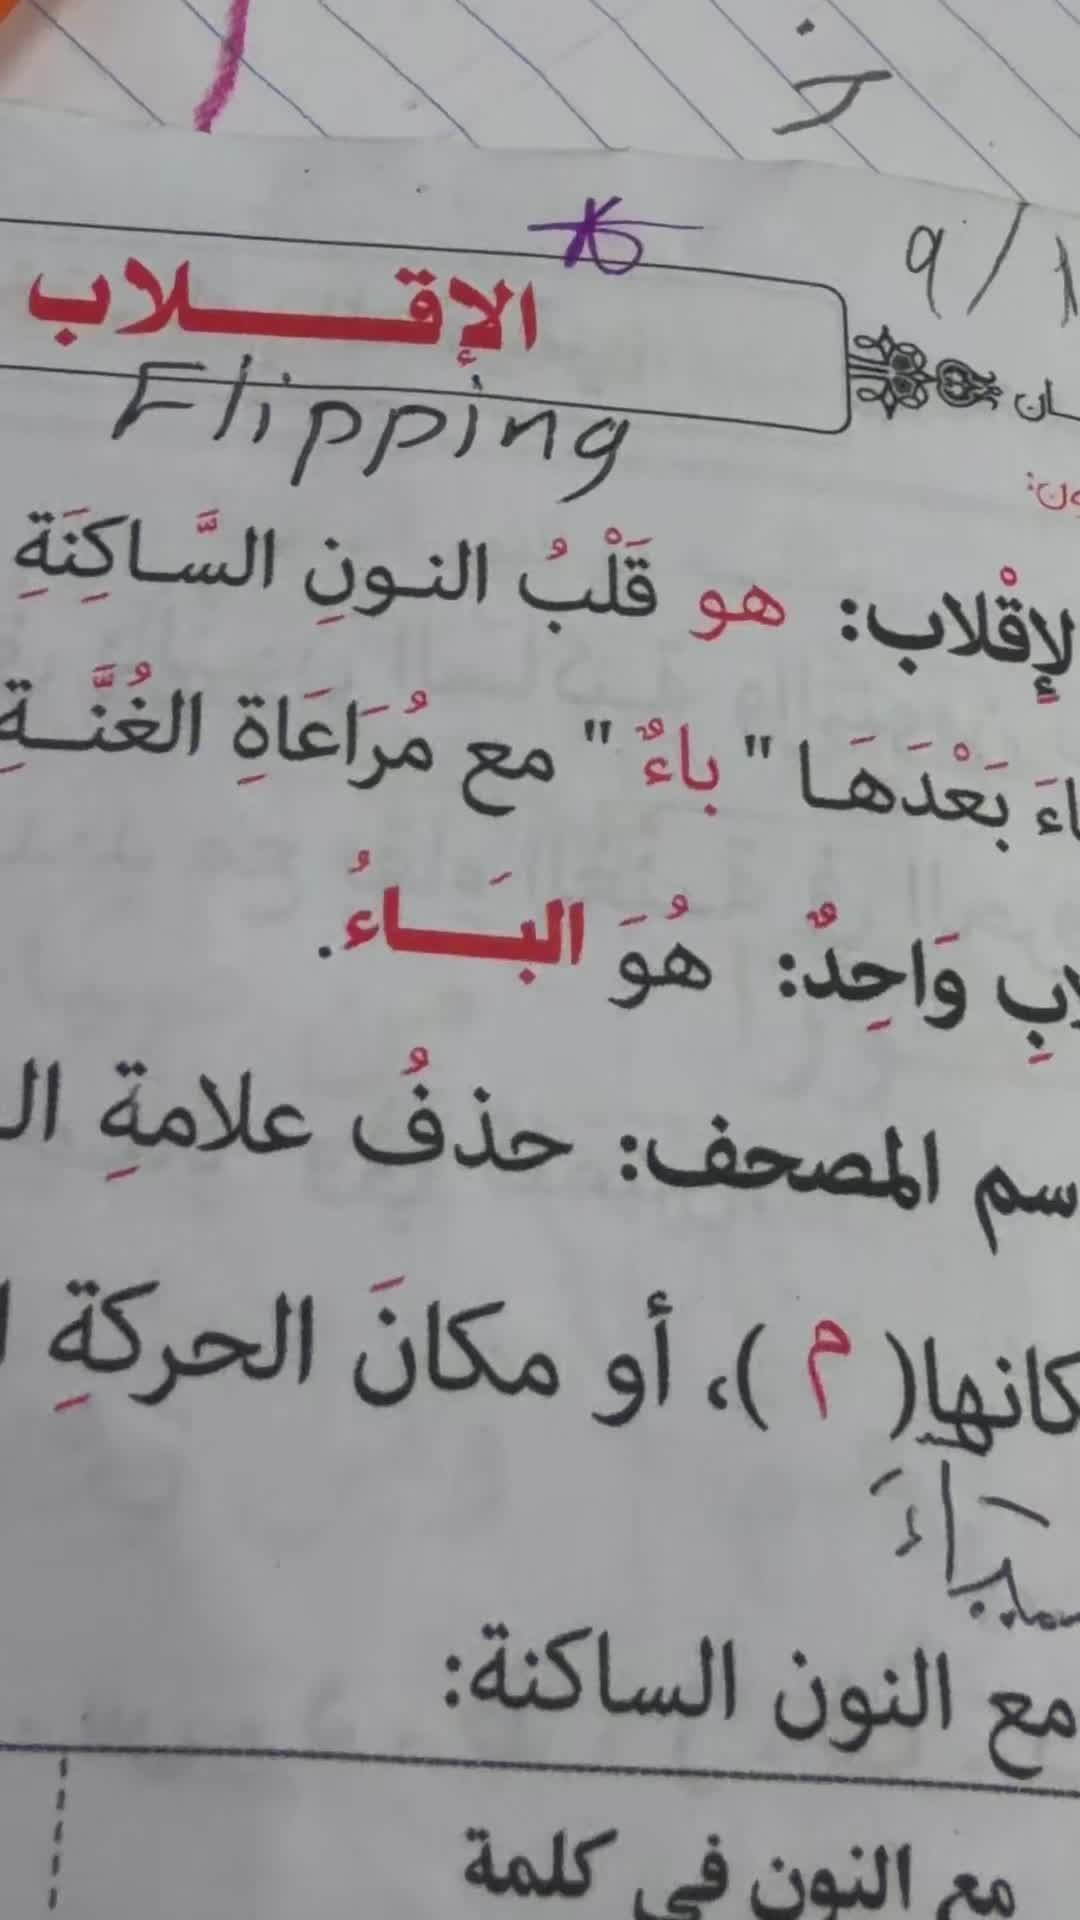 ٩/١
الإقـــــلاب
Flipping
ـان
ون:
لإقْلاب: هو قَلْبُ النونِ السَّاكِنَةِ
اءَ بَعْدَهَا "باءٌ" مع مُرَاعَاةِ الغُنَّةِ
لابِ وَاحِدٌ: هُوَ البَـاءُ.
سم المصحف: حذفُ علامةِ الـ
كانها( م )، أو مكانَ الحركةِ ا
مع النون الساكنة:
مع النون في كلمة